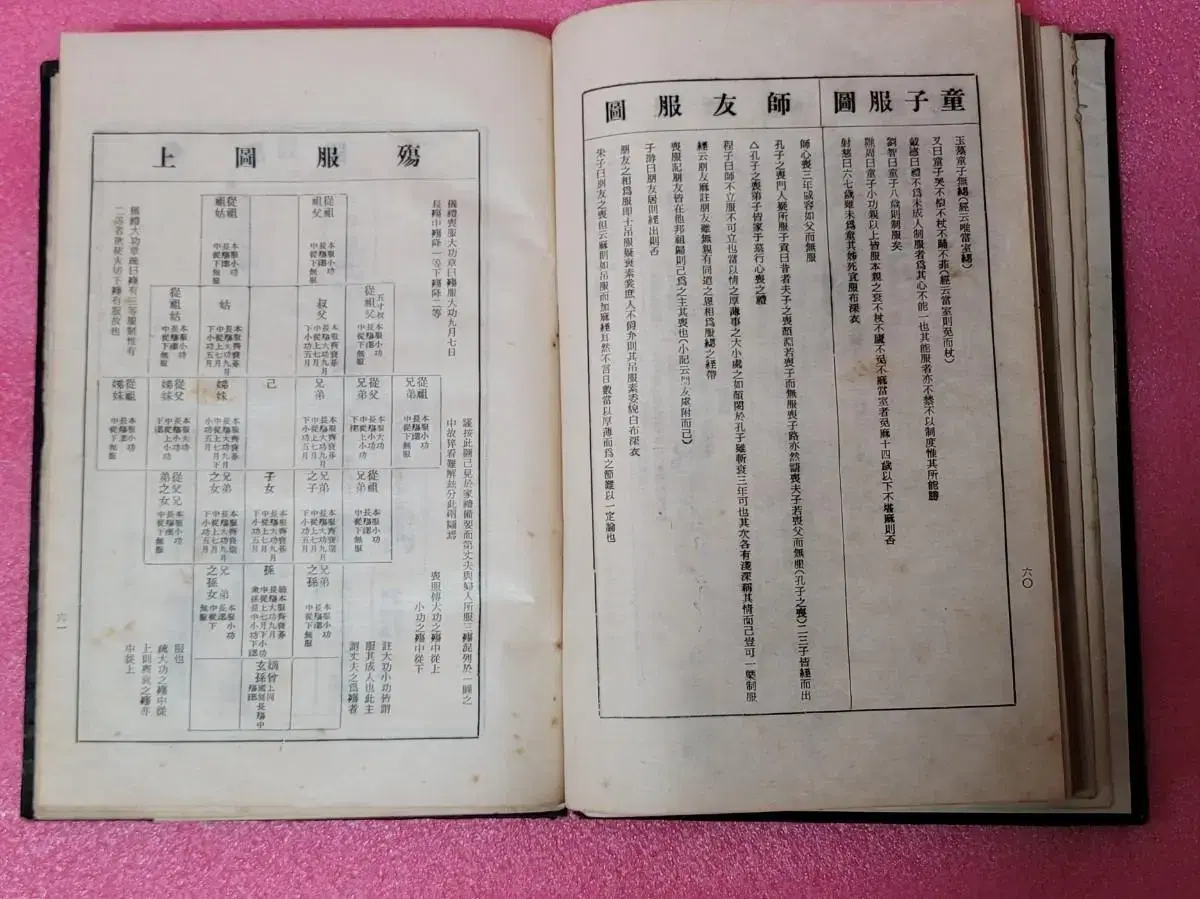 童子服圖
玉藻童子無緦(經云唯當室緦)
又曰童子哭不偯不杖不踊不菲(經云當室則免而杖)
戴德曰禮不為未成人制服者為其心不能一也其能服者亦不禁不以制度惟其所能勝
劉智曰童子八歲則制服矣
譙周曰童子小功親以上皆服本親之衰不杖不廬不免不麻當室者免麻十四歲以下不堪麻則否
射慈曰六七歲雖未為童其姊死宜服布深衣
師友服圖
師心喪三年戚容如父而無服
孔子之喪門人疑所服子貢曰昔者夫子之喪顏淵若喪子而無服喪子路亦然請喪夫子若喪父而無服(孔子之喪)二三子皆絰而出
△孔子之喪弟子皆家于墓行心喪之禮
程子曰師不立服不可立也當以情之厚薄事之大小處之如顏閔於孔子雖斬衰三年可也其次各有淺深稱其情而已豈可一槩制服
經云朋友麻註朋友雖無親有同道之恩相為服緦之絰帶
喪服記朋友皆在他邦袒歸則已為之主其喪也(小記云門友虞附而已)
子游曰朋友居則絰出則否
朋友之相為服即士吊服疑衰素裳庶人不爵弁則其吊服素委貌白布深衣
朱子曰朋友之喪但云麻則如吊服而加麻絰耳然不言日數當以厚薄而為之節難以一定論也
六〇
殤服圖上
儀禮喪服大功章曰殤服大功九月七日
長殤中殤降一等下殤降二等
謹按此圖已見於家禮備要而第丈夫與婦人所服三殤混列於一圖之
中故猝看難解玆分此兩圖焉
喪服傳大功之殤中從上
小功之殤中從下
註大功小功皆謂
服其成人也此主
謂丈夫之為殤者
從祖祖父
本服小功
長殤緦
中從下無服
從祖祖姑
本服小功
長殤緦
中從下無服
五寸叔
從祖父
本服小功
長殤緦
中從下無服
叔父
本服齊衰朞
長殤大功九月
中從上七月
下小功五月
姑
本服齊衰朞
長殤大功九月
中從上七月
下小功五月
從祖姑
本服小功
長殤緦
中從下無服
從祖兄弟
本服小功
長殤緦
中從下無服
從父兄弟
本服大功
長殤小功
中從上小功
下緦
兄弟
本服齊衰朞
長殤大功九月
中從上七月
下小功五月
己
姊妹
本服齊衰朞
長殤大功九月
中從上七月
下小功五月
從父姊妹
本服大功
長殤小功
中從上小功
下緦
從祖姊妹
本服小功
長殤緦
中從下無服
從祖兄弟
本服小功
長殤緦
中從下無服
兄弟之子
本服齊衰朞
長殤大功九月
中從上七月
下小功五月
子女
本服齊衰朞
長殤大功九月
中從上七月
下小功五月
兄弟之女
本服齊衰朞
長殤大功九月
中從上七月
下小功五月
從父兄弟之女
本服小功
長殤緦
中從下無服
兄弟之孫
本服小功
長殤緦
中從下無服
孫
嫡本服齊衰朞
長殤大功九月
中從上七月下小功
衆孫長中小功下緦
兄弟之孫女
本服小功
長緦
中從下
無服
嫡曾玄孫
上同
長殤中
殤緦
儀禮大功章疏曰殤有三等服制惟有
二等者欲使大功下殤有服故也
服也
疏大功之殤中從
上則齊衰之殤亦
中從上
六一